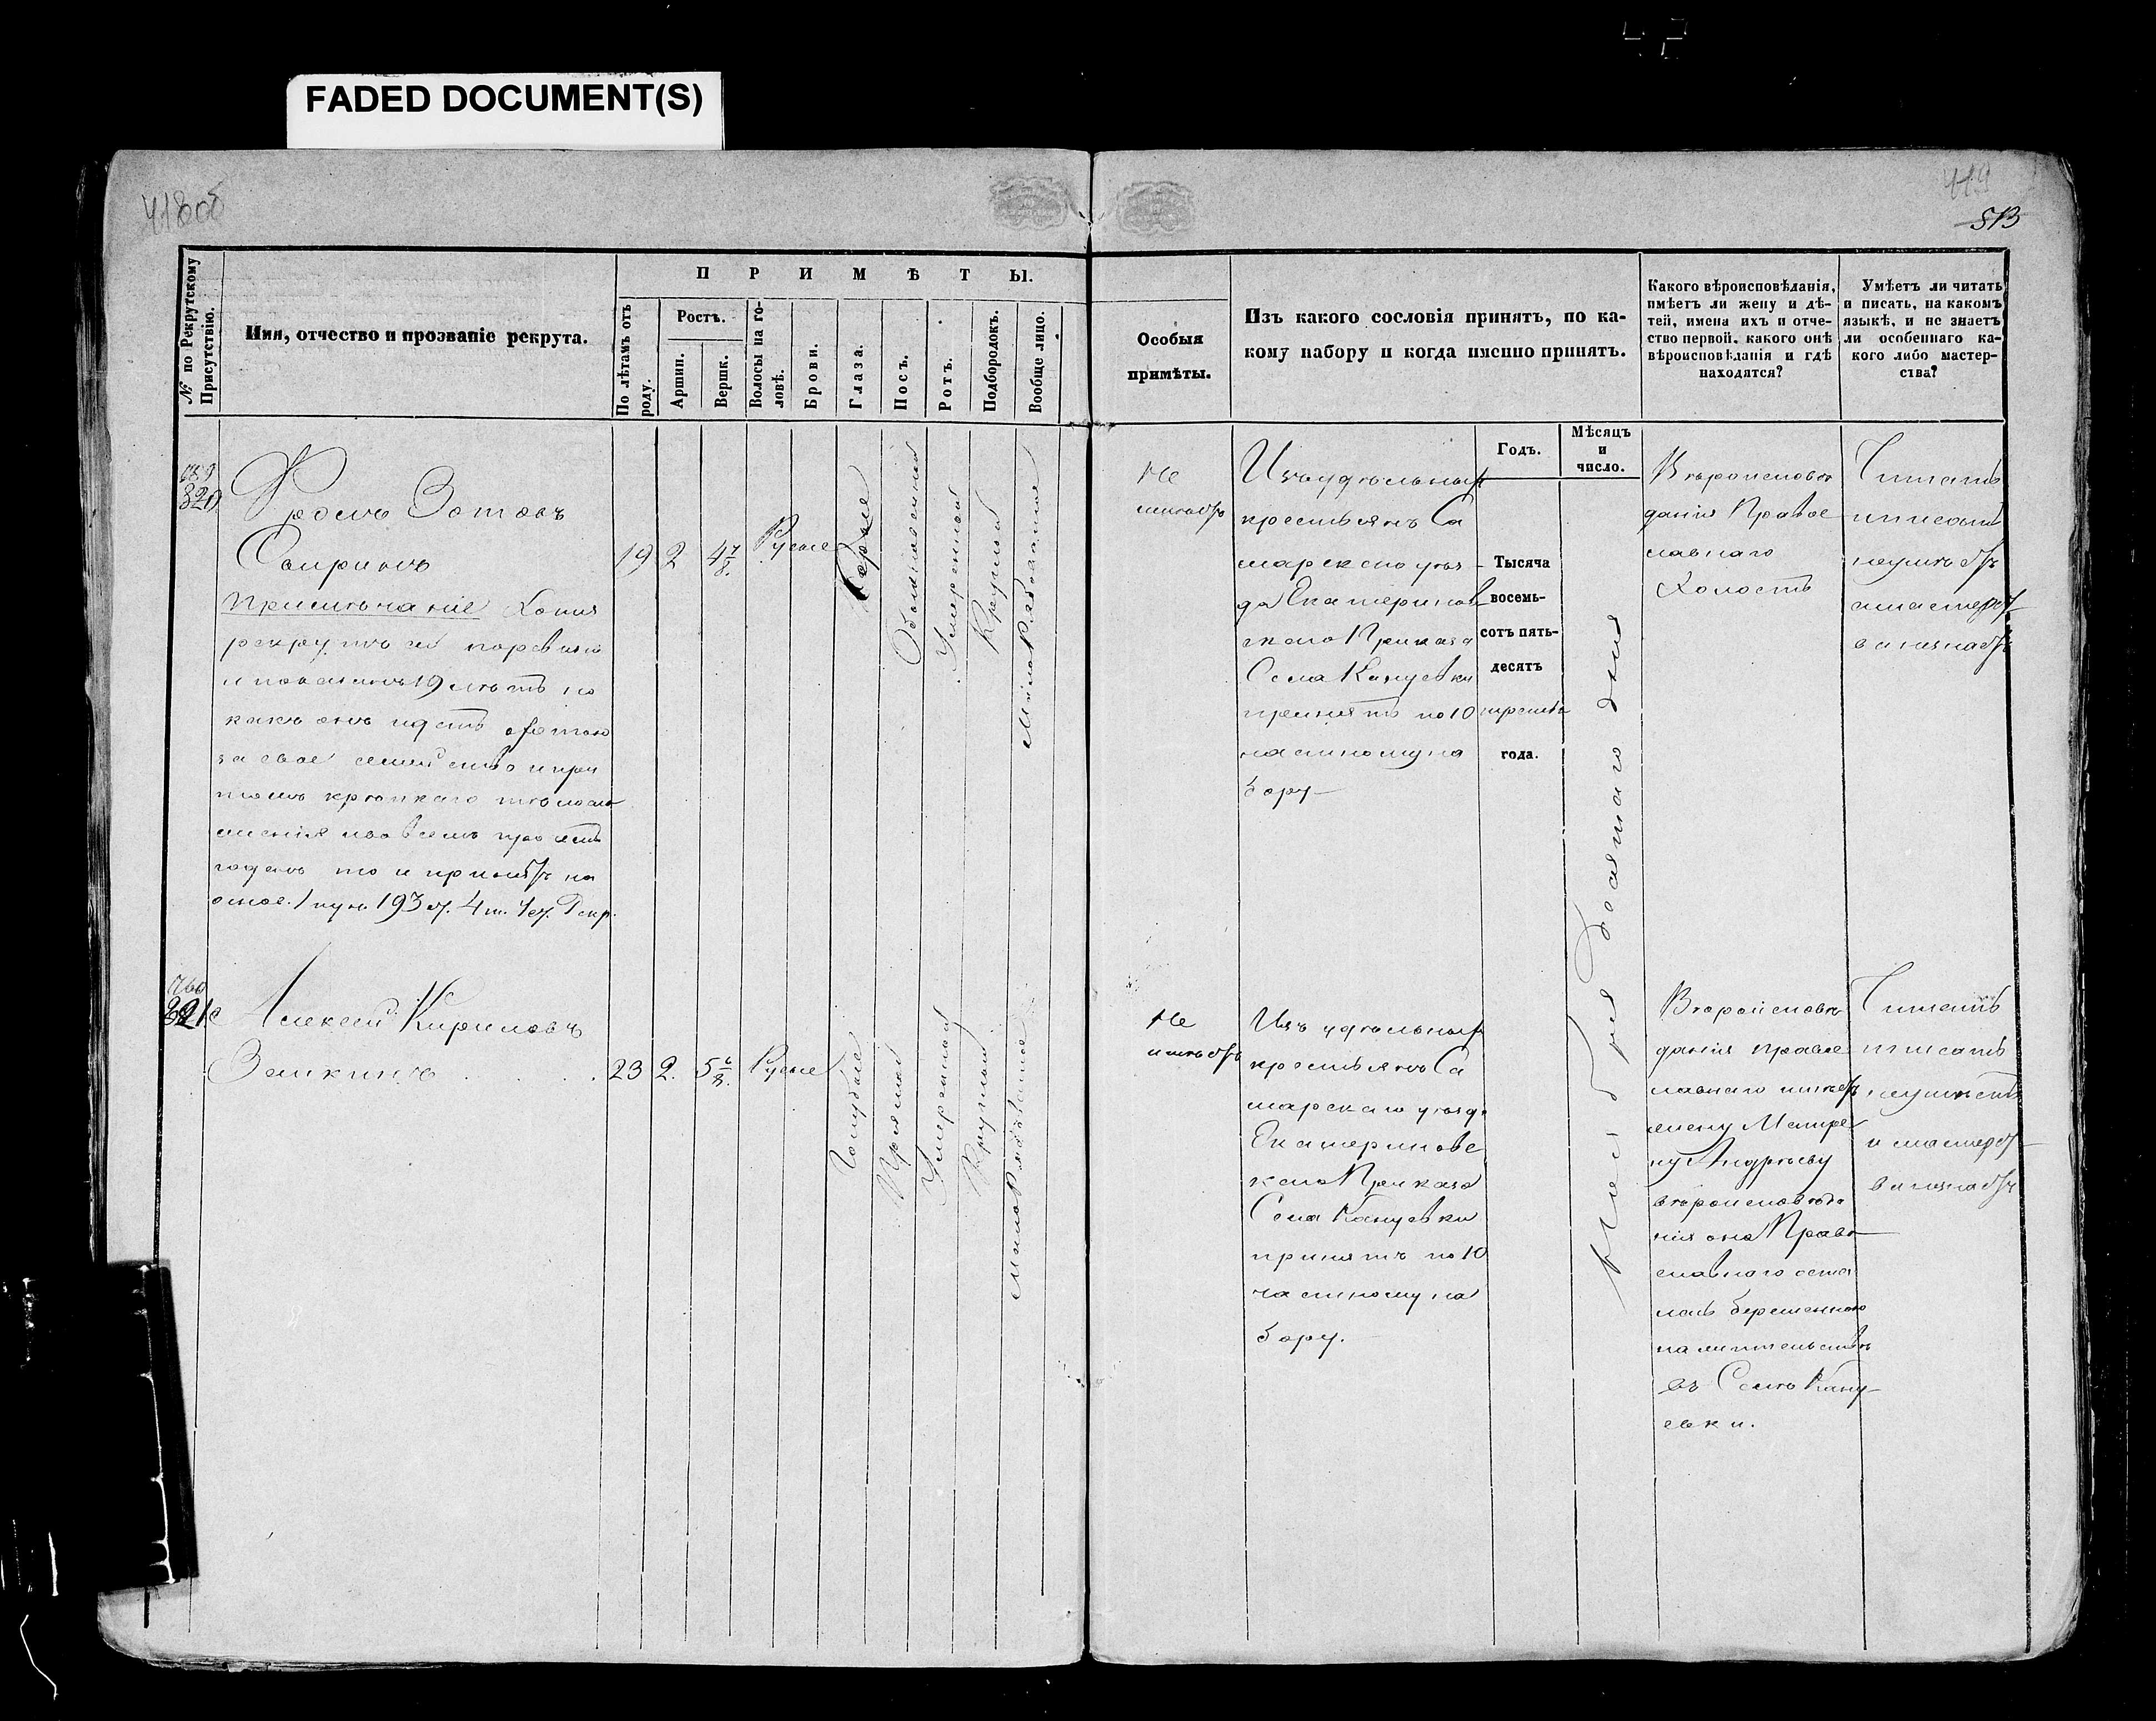 FADED DOCUMENT(S)
418об
419
513
№ по Рекрутскому Присутствію.
Имя, отчество и прозваніе рекрута.
ПРИМѢТЫ.
По лѣтамъ отъ роду.
Ростъ.
Аршин.
Вершк.
Волосы на головѣ.
Брови.
Глаза.
Носъ.
Ротъ.
Подбородокъ.
Вообще лицо.
Особыя
примѣты.
Изъ какого сословія принятъ, по ка-
кому набору и когда именно принятъ.
Какого вѣроисповѣданія,
имѣетъ ли жену и дѣ-
тей, имена ихъ и отче-
ство первой, какого онѣ
вѣроисповѣданія и гдѣ
находятся?
Умѣетъ ли читать
и писать, на какомъ
языкѣ, и не знаетъ
ли особеннаго ка-
кого либо мастер-
ства?
Годъ.
Мѣсяцъ
и
число.
320
Фролъ Зотовъ
19 2 4 7/8.
Русые
Карые
Умеренный
Круглой
Малорябоватое
Примѣчаніе Хотя
рекрутъ сей по ревизіи
и показанъ 19 лѣтъ но
какъ онъ идетъ охотою
за свое семейство и при
томъ крѣпкаго тѣлосло
женія и во всемъ
годенъ то и принятъ на
основ. 1 пун. 193 ст. 4 т. Уст. Рекр.
Не
имѣетъ
Изъ удѣльныхъ
крестьянъ Са
марскаго уѣз
да Екатеринов
скаго Приказа
Села Кануевки
принятъ по 10
частному на
бору
Тысяча
восемь-
сотъ пять-
десятъ
третьяго
года.
Вѣроисповѣ
данія Правос
лавнаго
Холостъ
Читать
и писать
неумѣетъ
и мастерст
ва незнаетъ
321
Алексей Кириловъ
Земкинъ
23 2. 5 6/8. Русые
Голубые
Прямой
Умеренной
Круглой
Малорябоватое
Не
имѣетъ
Изъ удѣльныхъ
крестьянъ Са
марскаго уѣзда
Екатериновс
каго Приказа
Села Кануевки
принятъ по 10
частному на
бору.
Вѣроисповѣ
данія правос
лавнаго имѣетъ
жену Матре
ну Андрѣеву
вѣроисповѣда
нія она Право
славнаго оста
лась беременною
на жительствѣ
въ Селѣ Кану
евки.
Читать
и писать
неумѣетъ
и мастерст
ва незнаетъ